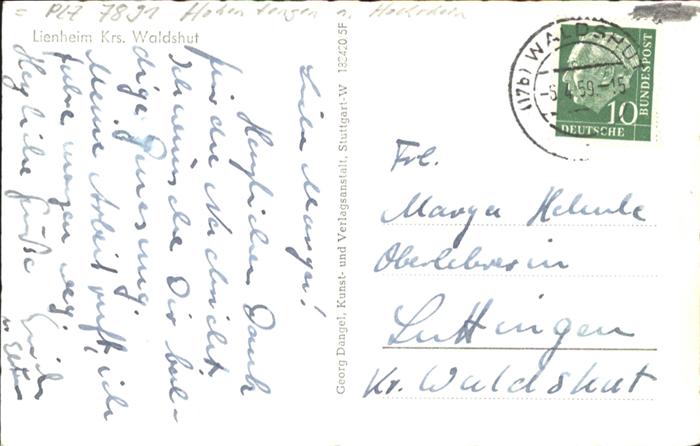 = PLZ 7891 Hohentengen a. Hochrhein
Lienheim Krs. Waldshut
Liebe Marga!
Herzlichen Dank
für die Nachricht
Ich wünsche Dir bal-
dige Genesung.
Meine Arbeit ruft, ich
fahre morgen weg.
Herzliche Grüße
u. Eltern
Georg Dangel, Kunst- und Verlagsanstalt, Stuttgart-W 182420 5F
(17b) WALDSHUT
-6.4.59.-15
10
DEUTSCHE
BUNDESPOST
Frl.
Marga Helmle
Oberlehrerin
Luttingen
Kr. Waldshut